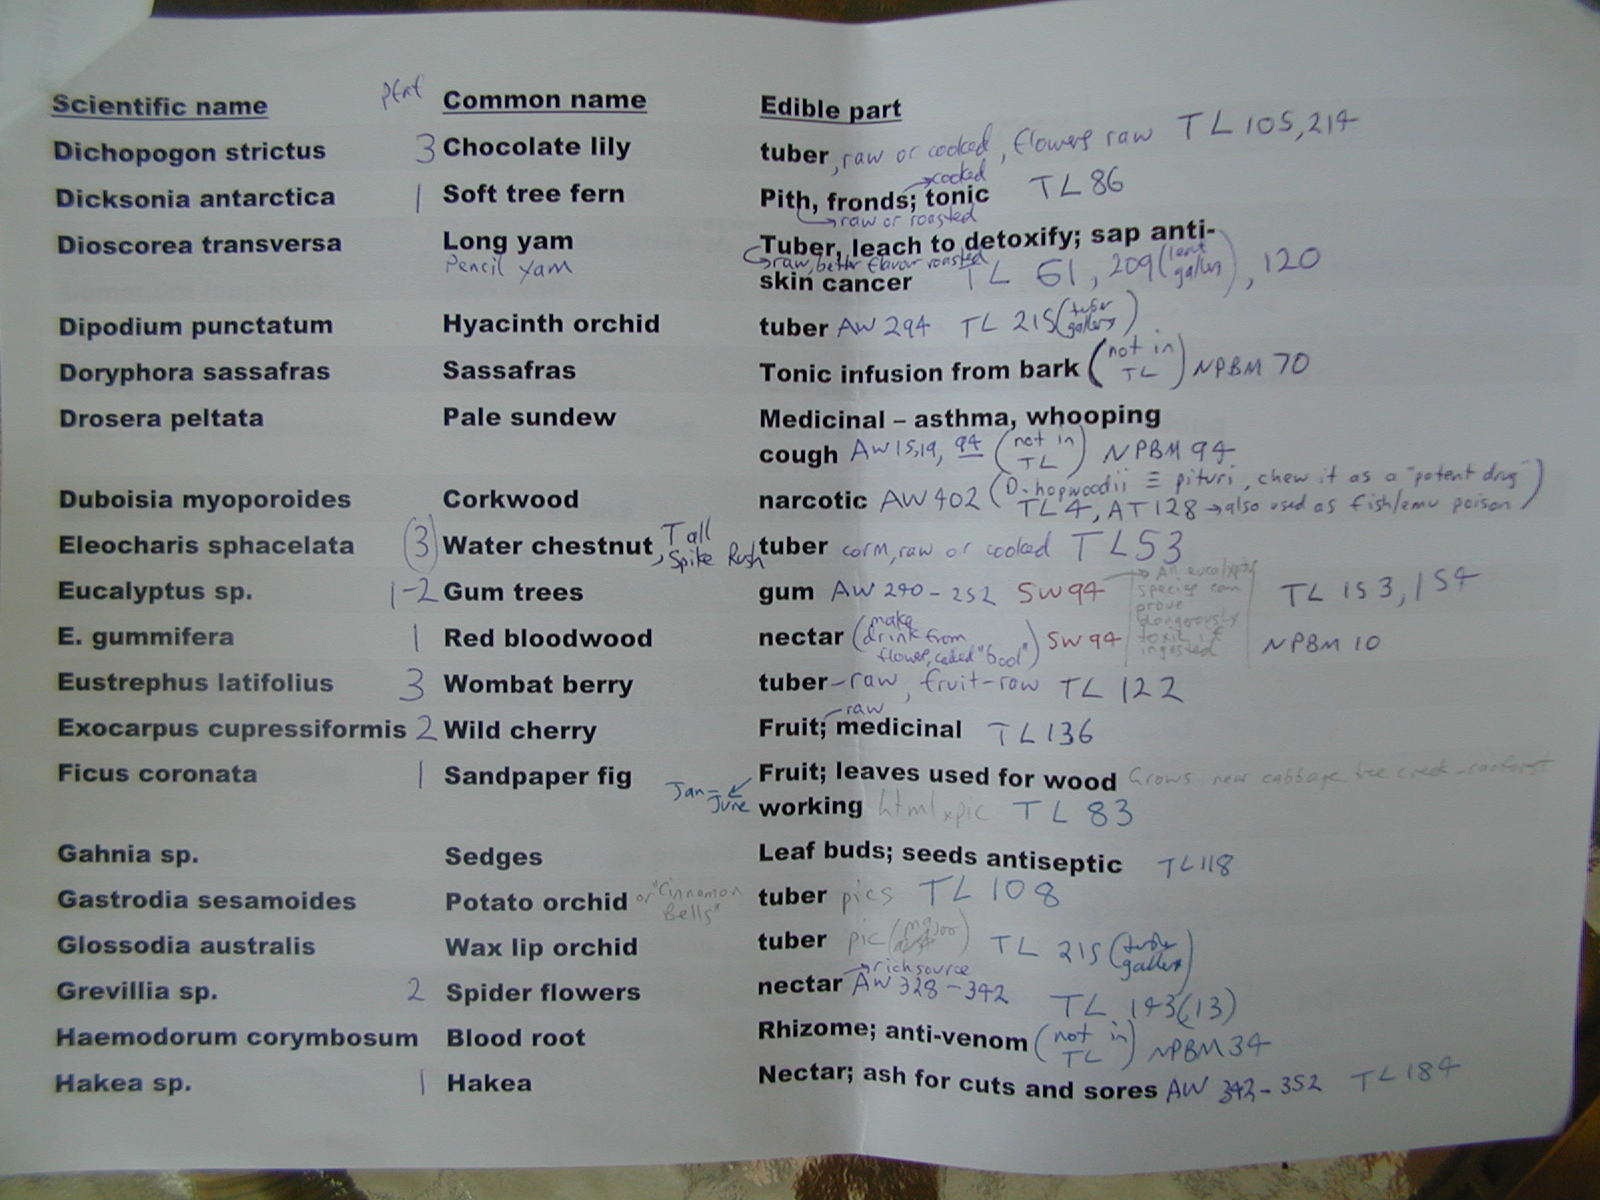 Scientific name Common name Edible part
Dichopogon strictus 3 Chocolate lily tuber, raw or cooked, flowers raw TL 105, 214
cooked
Dicksonia antarctica 1 Soft tree fern Pith, fronds; tonic TL 86
raw or roasted
Dioscorea transversa Long yam Tuber, leach to detoxify; sap anti-
Pencil yam raw, better flavour roasted
skin cancer TL 61, 209 ( gallery), 120
Dipodium punctatum Hyacinth orchid tuber AW 294 TL 215 (tuber gallery)
Doryphora sassafras Sassafras Tonic infusion from bark (not in TL) NPBM 70
Drosera peltata Pale sundew Medicinal – asthma, whooping
cough AW 15,19, 94 (not in TL) NPBM 94
Duboisia myoporoides Corkwood narcotic AW 402 (D. hopwoodii ≡ pituri, chew it as a "potent drug")
TL 4, AT 128 → also used as fish/emu poison
Eleocharis sphacelata (3) Water chestnut, Tall Spike Rush tuber corm, raw or cooked TL 53
Eucalyptus sp. 1-2 Gum trees gum AW 240-252 SW 94 → All eucalyptus species can prove dangerously toxic if ingested TL 153, 154
E. gummifera 1 Red bloodwood nectar (make drink from flower, called "bool") SW 94 NPBM 10
Eustrephus latifolius 3 Wombat berry tuber - raw, fruit - raw TL 122
raw
Exocarpus cupressiformis 2 Wild cherry Fruit; medicinal TL 136
Ficus coronata 1 Sandpaper fig Fruit; leaves used for wood Grows near cabbage tree creek - rainforest
Jan - June working html, pic TL 83
Gahnia sp. Sedges Leaf buds; seeds antiseptic TL 118
Gastrodia sesamoides Potato orchid or "Cinnamon Bells" tuber pics TL 108
Glossodia australis Wax lip orchid tuber pic TL 215 (tuber gallery)
→ rich source
Grevillia sp. 2 Spider flowers nectar AW 328-342 TL 143 (13)
Haemodorum corymbosum Blood root Rhizome; anti-venom (not in TL) NPBM 34
Hakea sp. 1 Hakea Nectar; ash for cuts and sores AW 342-352 TL 184